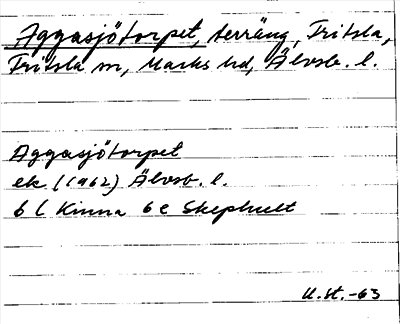 Aggasjötorpet, terräng, Fritsla,
Fritsla sn, Marks hd, Älvsb. l.
Aggasjötorpet
ek (1962) Älvsb. l.
6 C Kinna 6 e Skephult
U.St. -63